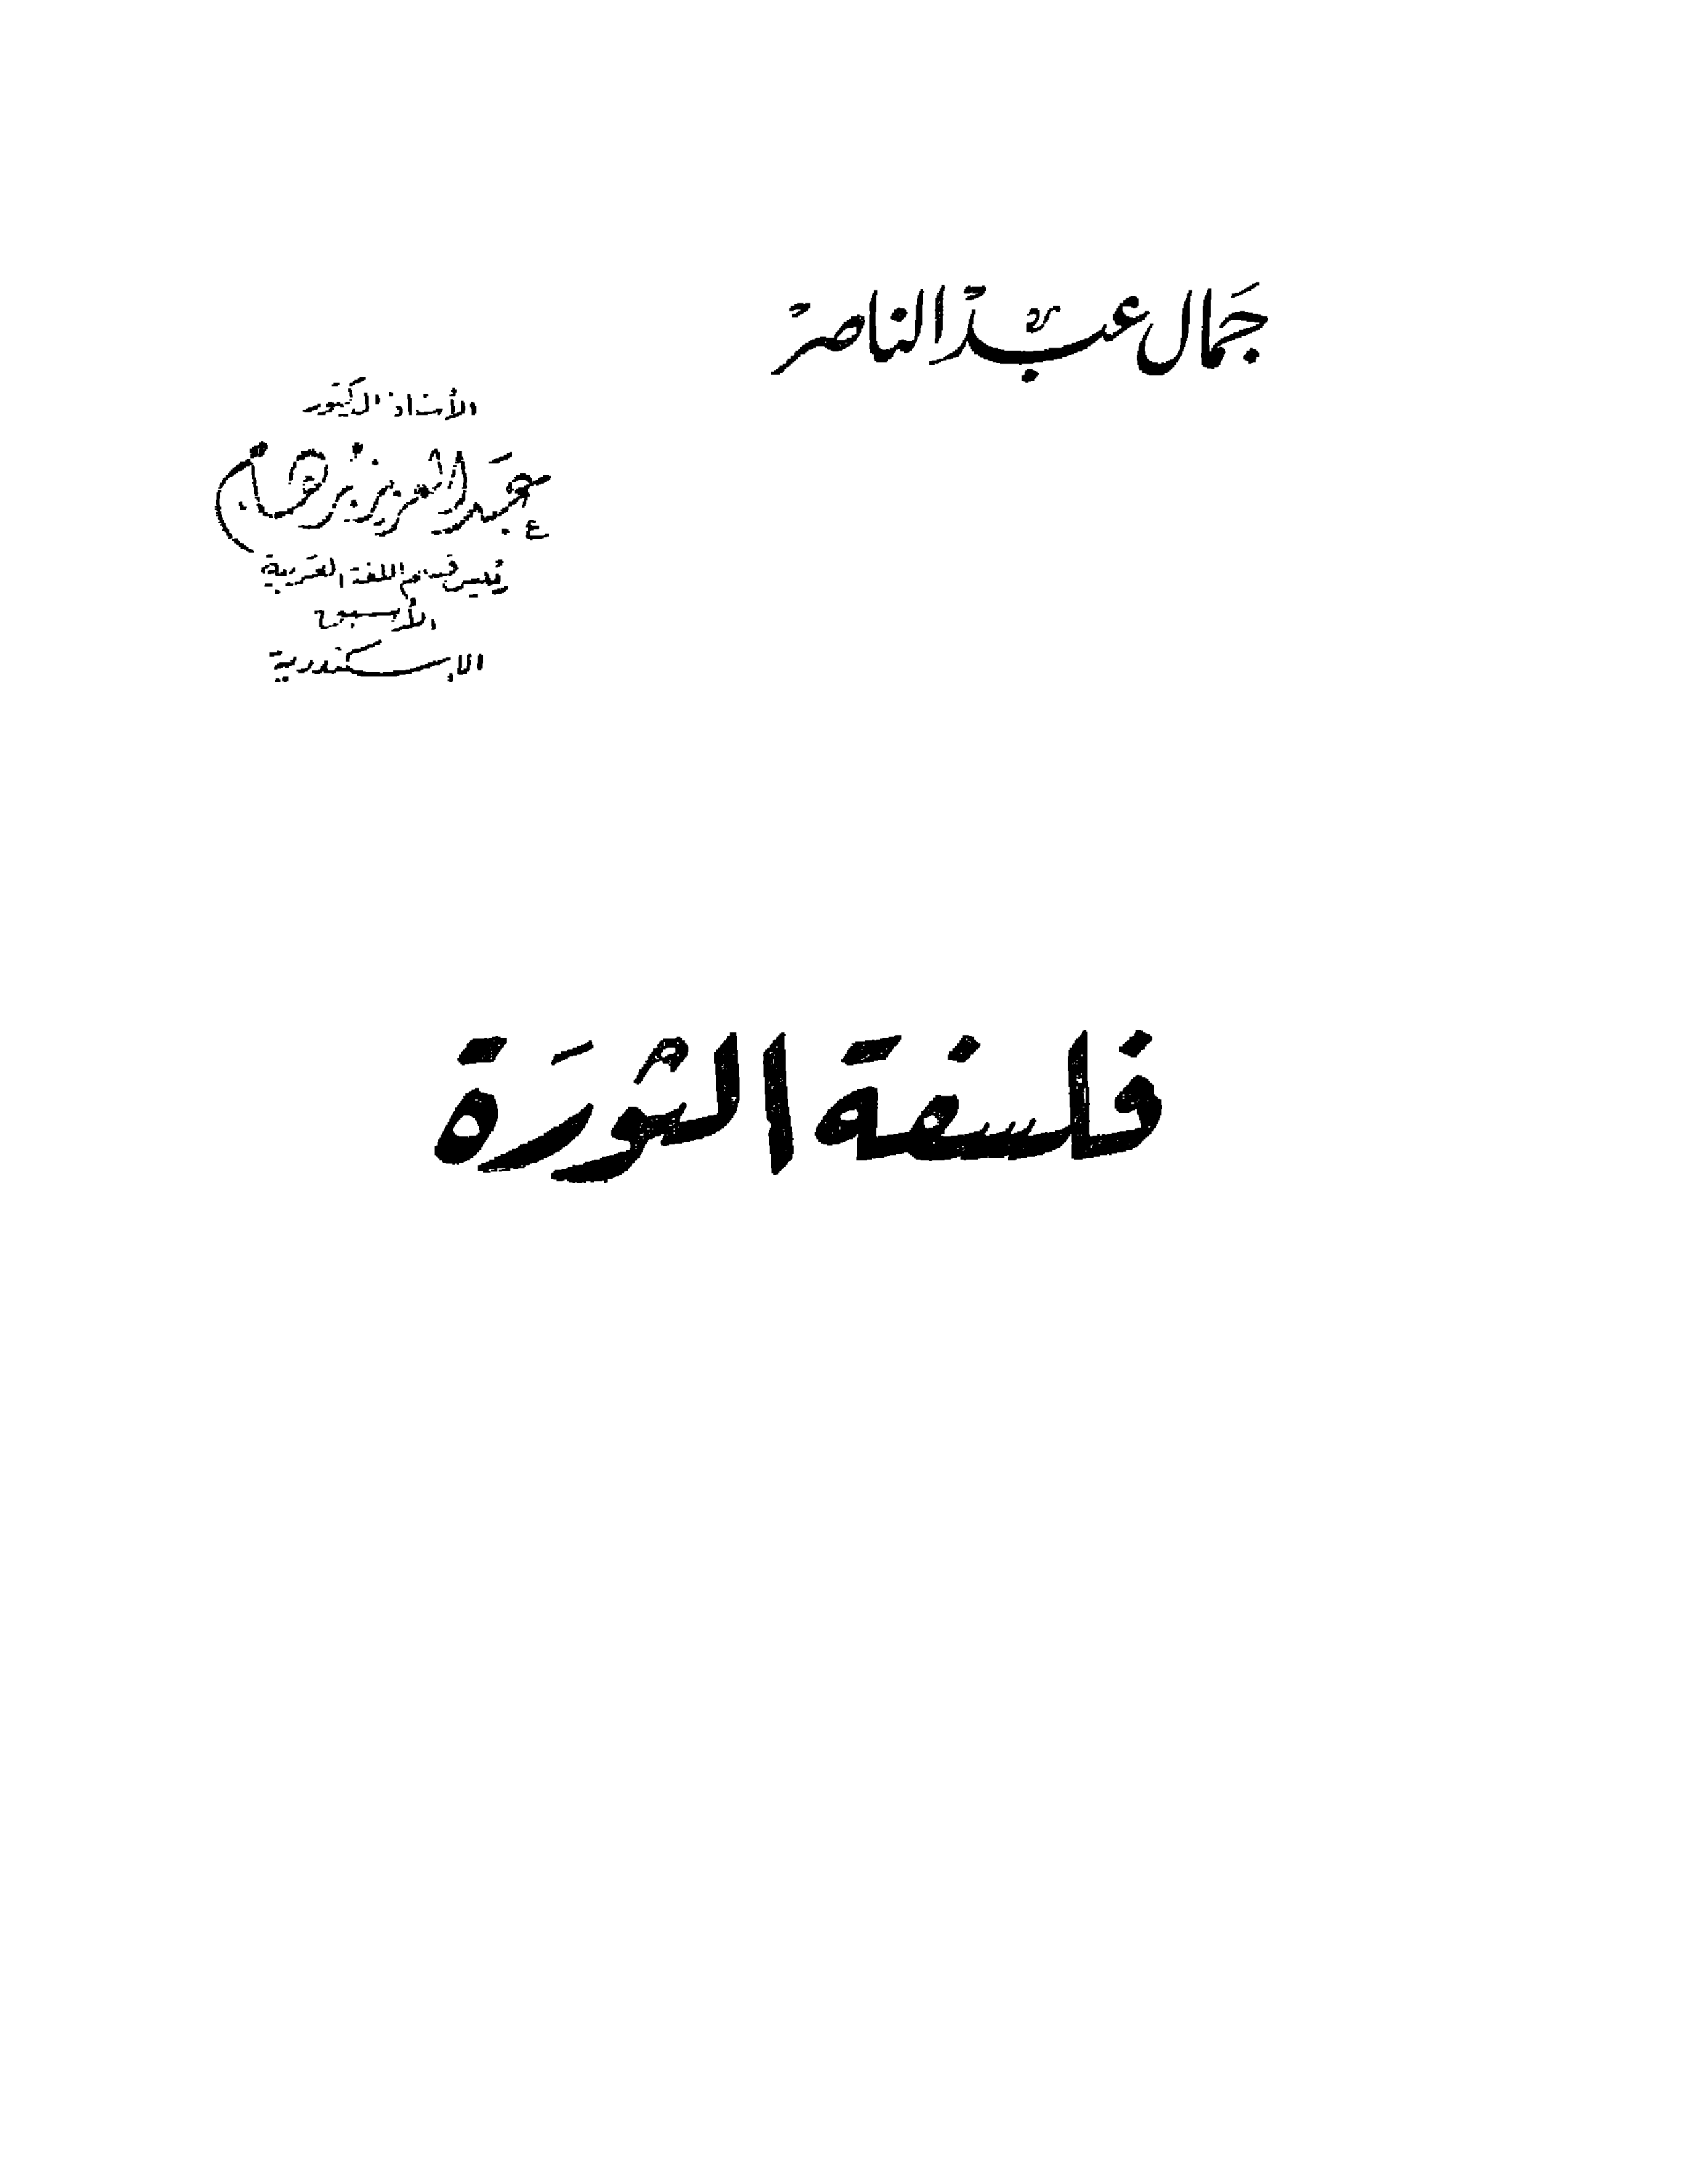 جمال عبد الناصر
الأستاذ الدكتور
عبد العزيز برهام
رئيس قسم اللغة العربية
الأسبق
الإسكندرية
فلسفة الثورة